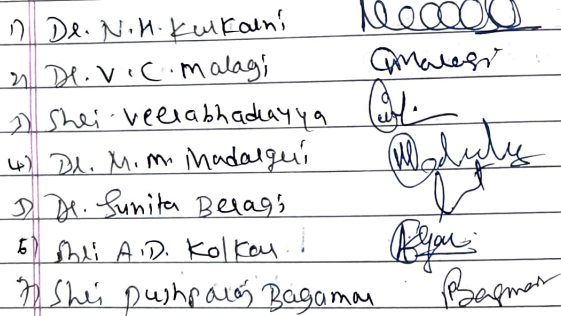 1) Dr. N.H. Kulkarni
2) Dr. V. C. Malagi Cmalagi
3) Shri Veerabhadrayya
4) Dr. M. M. Madalgeri
5) Dr. Sunita Beragi
6) Shri A.D. Kolkar
7) Shri Pushparaj Bagamar Bagmar